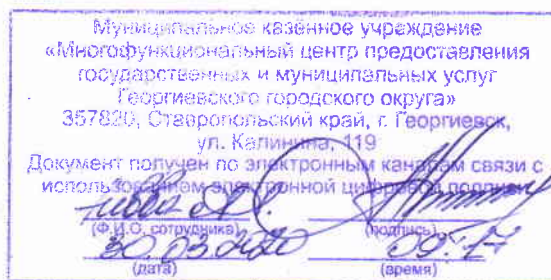 Муниципальное казённое учреждение
«Многофункциональный центр предоставления
государственных и муниципальных услуг
Георгиевского городского округа»
357820, Ставропольский край, г. Георгиевск,
ул. Калинина, 119
Документ получен по электронным каналам связи с
использованием электронной цифровой подписи
(Ф.И.О. сотрудника) (подпись)
30.03.2020 09:17
(дата) (время)